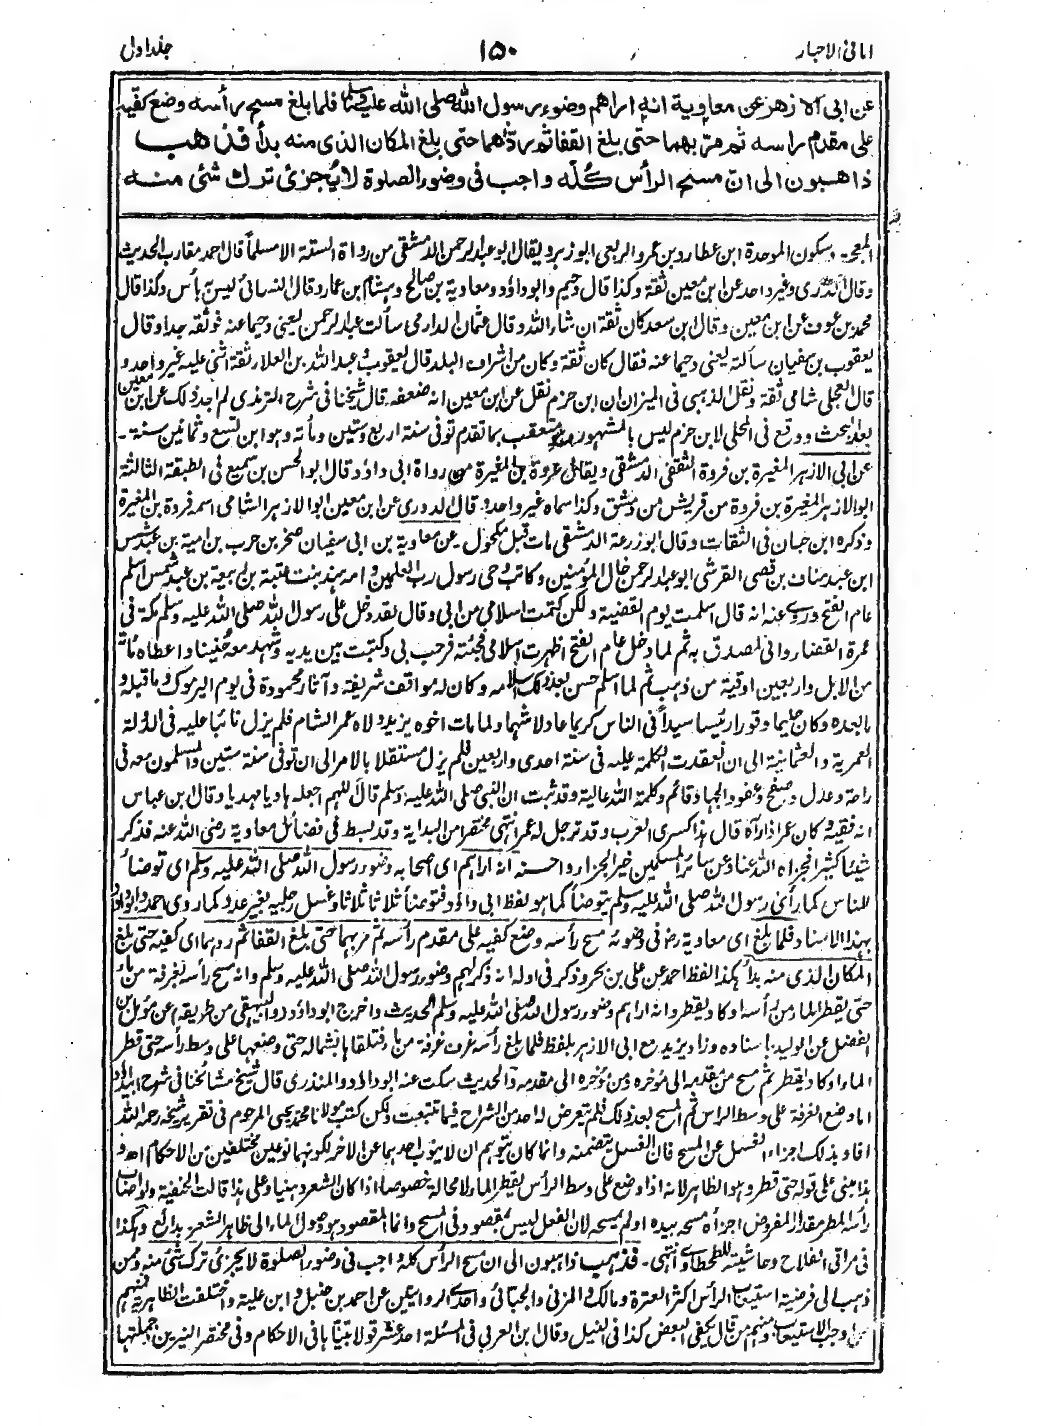 امانی الاحبار ۱۵۰ جلد اول
عن ابی الازهر عن معاویة انه اراهم وضوء رسول الله صلی الله علیه وسلم فلما بلغ مسح رأسه وضع کفیه
علی مقدم رأسه ثم مرّ بهما حتی بلغ القفا ثم ردّهما حتی بلغ المکان الذی منه بدأ فذهب
ذاهبون الی انّ مسح الرأس کلّه واجب فی وضوء الصلوة لا یُجزئ ترك شئ منه
المعجمة وسکون الموحدة ابن عطارد بن عمرو الربعی ابو زبر ویقال ابو عبدالرحمن الدمشقی من رواة الستة الا مسلماً قال احمد مقارب الحدیث
وقال الدوری وغیر واحد عن ابن معین ثقة وکذا قال دحیم وابوداؤد ومعاویة بن صالح وهشام بن عمار وقال النسائی لیس به بأس وکذا قال
محمد بن عوف عن ابن معین وقال ابن سعد کان ثقة ان شاء الله وقال عثمان الدارمی سألت عبدالرحمن یعنی دحیما عنه فوثقه جدا وقال
یعقوب بن سفیان سألته یعنی دحیما عنه فقال کان ثقة وکان من اشراف البلد قال یعقوب وعبدالله بن العلاء ثقة اثنی علیه غیر واحد و
قال العجلی شامی ثقة ونقل الذهبی فی المیزان ان ابن حزم نقل عن ابن معین انه ضعفه قال شیخنا فی شرح الترمذی لم اجد ذلک عن ابن معین
بعد البحث ووقع فی المحلی لابن حزم لیس بالمشهور وهو متعقب بما تقدم توفی سنة اربع وستین ومأته وهو ابن تسع وثمانین سنة ۔
عن ابی الازهر المغیرة بن فروة الثقفی الدمشقی ویقال عروة بن المغیرة من رواة ابی داؤد وقال ابو الحسن بن سمیع فی الطبقة الثالثة
ابو الازهر المغیرة بن فروة من قریش من دمشق وکذا سماه غیر واحد۔ قال الدوری عن ابن معین ابو الازهر الشامی اسمه فروة بن المغیرة
وذکره ابن حبان فی الثقات وقال ابو زرعة الدمشقی مات قبل مکحول ۔ عن معاویة بن ابی سفیان صخر بن حرب بن امیة بن عبد شمس
ابن عبد مناف بن قصی القرشی ابو عبدالرحمن خال المؤمنین وکاتب وحی رسول رب العلمین وامه هند بنت عتبة بن ربیعة بن عبد شمس اسلم
عام الفتح وروی عنه انه قال اسلمت یوم القضیة ولکن کتمت اسلامی من ابی وقال لقد دخل علی رسول الله صلی الله علیه وسلم مکة فی
عمرة القضاء وانی لمصدق به ثم لما دخل عام الفتح اظهرت اسلامی فجئته فرحب بی وکتبت بین یدیه وشهد معه حنینا واعطاه مائة
من الابل واربعین اوقیة من ذهب ثم لما اسلم حسن بعد ذلک اسلامه وکان له مواقف شریفة وآثار محمودة فی یوم الیرموک وما قبله و
ما بعده وکان حلیما وقورا رئیسا سیداً فی الناس کریما عادلا شهما ولما مات اخوه یزید ولاه عمر الشام فلم یزل نائبا علیه فی الدولة
العمریة والعثمانیة الی ان انعقدت الکلمة علیه فی سنة احدی واربعین فلم یزل مستقلا بالامر الی ان توفی سنة ستین والمسلمون معه فی
راحة وعدل وصفح وعفو والجهاد قائم وکلمة الله عالیة وقد ثبت ان النبی صلی الله علیه وسلم قال اللهم اجعله هادیا مهدیا وقال ابن عباس
انه فقیه وکان عمر اذا رآه قال هذا کسری العرب وقد ترجل له عمر انتهی مختصرا من البدایة وقد بسط فی فضائل معاویة رضی الله عنه فذکر
شیئا کثیرا فجزاه الله عنا وعن سائر المسلمین خیر الجزاء واحسنه انه اراهم ای اصحابه وضوء رسول الله صلی الله علیه وسلم ای توضأ
للناس کما رأی رسول الله صلی الله علیه وسلم یتوضأ کما هو لفظ ابی داؤد فتوضأ ثلاثا ثلاثا وغسل رجلیه بغیر عدد کما روی احمد وابوداؤد
بهذا الاسناد فلما بلغ ای معاویة رضہ فی وضوئه مسح رأسه وضع کفیه علی مقدم رأسه ثم مر بهما حتی بلغ القفا ثم ردهما ای کفیه حتی بلغ
المکان الذی منه بدأ هکذا لفظ احمد عن علی بن بحر وذکر فی اوله انه ذکر لهم وضوء رسول الله صلی الله علیه وسلم وانه مسح رأسه بغرفة من ماء
حتی یقطر الماء من رأسه او کاد یقطر وانه اراهم وضوء رسول الله صلی الله علیه وسلم الحدیث واخرج ابوداؤد والبیهقی من طریقه عن مؤمل بن
الفضل عن الولید باسناده وزاد یزید مع ابی الازهر بلفظ فلما بلغ رأسه غرف غرفة من ماء فتلقاها بشماله حتی وضعها علی وسط رأسه حتی قطر
الماء او کاد یقطر ثم مسح من مقدمه الی مؤخره ومن مؤخره الی مقدمه الحدیث سکت عنه ابوداؤد والمنذری قال شیخ مشائخنا فی شرح ابی داؤد
اما وضع الغرفة علی وسط الرأس ثم المسح بعد ذلک فلم یتعرض له احد من الشراح فیما تتبعت ولکن کتب مولانا محمد یحیی المرحوم فی تقریر شیخه رحمه الله
افاد بذلک اجزاء الغسل عن المسح فان الغسل یتضمنه وانما کان یتوهم ان لا ینوب احدهما عن الآخر لکونهما نوعین مختلفین من الاحکام اه و
هذا مبنی علی قوله حتی قطر وهو الظاهر لانه اذا وضع علی وسط الرأس یقطر الماء ولا محالة خصوصا اذا کان الشعر دهنیا وعلی هذا قالت الحنفیة ولو اصاب
رأسه المطر مقدار المفروض اجزأه مسحه بیده او لم یمسحه لان الفعل لیس بمقصود فی المسح وانما المقصود هو وصول الماء الی ظاهر الشعر بدائع وهکذا
فی مراقی الفلاح وحاشیته للطحطاوی انتهی ۔ فذهب ذاهبون الی ان مسح الرأس کله واجب فی وضوء الصلوة لا یجزئ ترک شئ منه وممن
ذهب الی فرضیة استیعاب الرأس اکثر العترة ومالک والمزنی والجبائی واحدی الروایتین عن احمد بن حنبل وابن علیة واختلفت الظاهریة فمنهم
من اوجب الاستیعاب ومنهم من قال یکفی البعض کذا فی النیل وقال ابن العربی فی المسئلة احد عشر قولا بیّناها فی الاحکام وفی مختصر النیرین جملتها